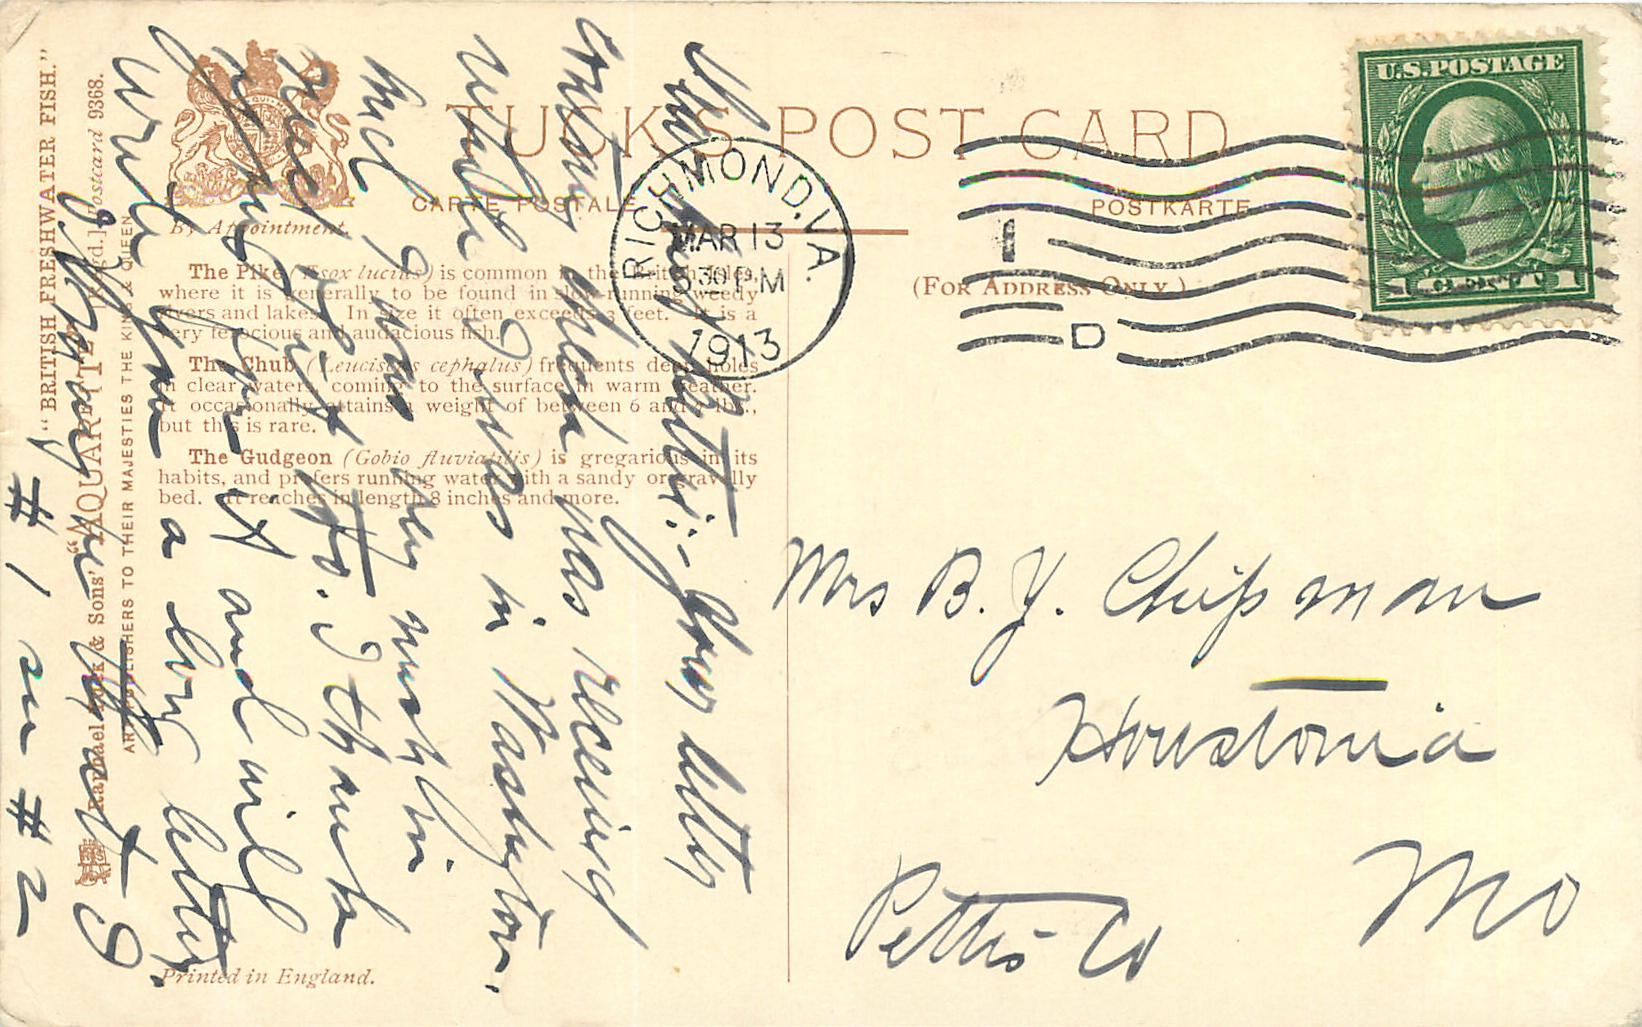 TUCK'S POST CARD
CARTE POSTALE
POSTKARTE
By Appointment.
(FOR ADDRESS ONLY.)
The Pike (Esox lucius) is common in the British Isles,
where it is generally to be found in slow-running weedy
rivers and lakes. In size it often exceeds 3 feet. It is a
very ferocious and audacious fish.
The Chub (Leuciscus cephalus) frequents deep holes
in clear water, coming to the surface in warm weather.
It occasionally attains a weight of between 6 and lbs.,
but this is rare.
The Gudgeon (Gobio fluviatilis) is gregarious in its
habits, and prefers running water with a sandy or gravelly
bed. It reaches in length 8 inches and more.
Printed in England.
"BRITISH FRESHWATER FISH."
Raphael Tuck & Sons' "AQUARETTE" [Regd.] Postcard 9368.
ART PUBLISHERS TO THEIR MAJESTIES THE KING & QUEEN
RICHMOND, VA.
MAR 13
8 30 PM
1913
1
D
U.S. POSTAGE
Your letter
was receiving
while I was in Washington.
I was very much in
need of it too. I thank
you for it and will
write you a long letter.
I
# 1 on # 2
Mrs B. Y. Chipman
Houstonia
Pettis Co
Mo